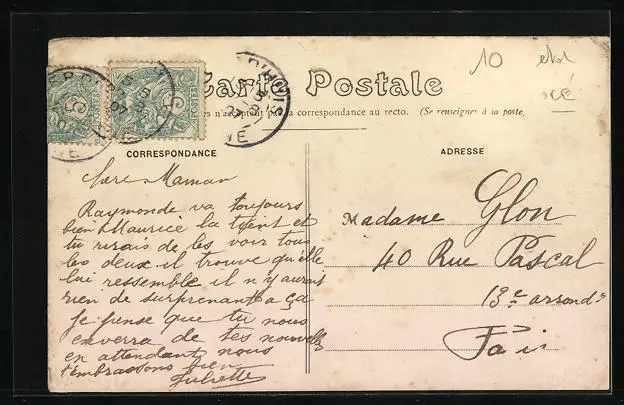 10
CÉ
Carte Postale
n'acceptent pas la correspondance au recto. (Se renseigner à la poste,
CORRESPONDANCE
ADRESSE
POSTES
POSTES
Chère Maman
Raymonde va toujours
bien Maurice la tient et
tu rirais de les voir tous
les deux il trouve qu'elle
lui ressemble il n'y aurait
rien de surprenant a ça
Je pense que tu nous
enverra de tes nouvelles
en attendant nous
t'embrassons bien
Juliette
Madame Glon
40 Rue Pascal
13e arrond
Paris